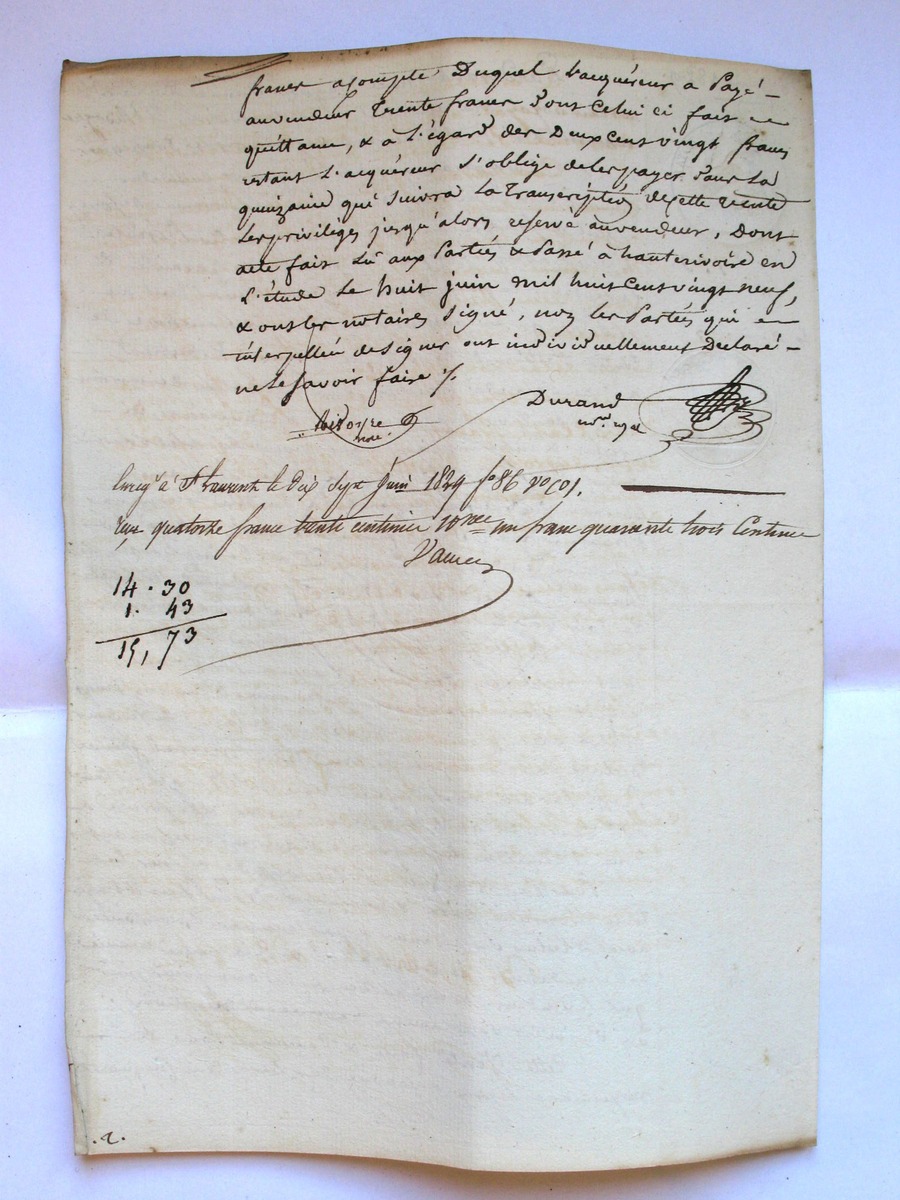 francs acompte Duquel l'acquéreur a Payé
auvendeur trente francs dont Celui ci fait
quittance, & à L'égard des Deux cent vingt francs
restant L'acquéreur S'oblige delespayer Dans La
quinzaine qui Suivra La Transcription decette vente
Lesprivilèges jusqu'alors reservé auvendeur, Dont
acte fait Lu aux Parties & Passé à hauterivoire en
L'étude Le huit juin mil huit cent vingt neuf,
& ont les notaires Signé, non les Parties qui
interpellées designer ont individuellement Declaré
nelesavoir faire ./.
Durand
nore.
Enreg.é à St Laurent le dix Sept Juin 1829 fo 86 Vo Co 1.
reçu quatorze francs trente centimes 10me un franc quarante trois Centimes
14.30
1. 43
15, 73
.2.